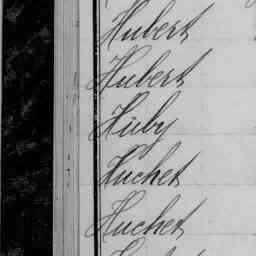 Hubert
Hubert
Huby
Huchet
Huchet